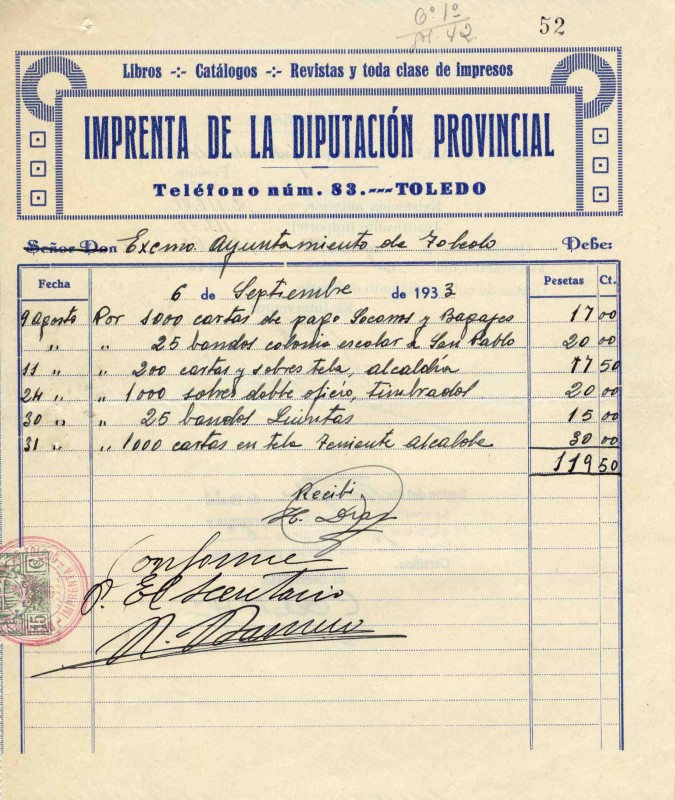 6º 1º
art. 42.
52
Libros -:- Catálogos -:- Revistas y toda clase de impresos
IMPRENTA DE LA DIPUTACIÓN PROVINCIAL
Teléfono núm. 83.---TOLEDO
Señor Don Excmo Ayuntamiento de Toledo Debe:
Fecha 6 de Septiembre de 1933 Pesetas Ct.
9 agosto Por 1000 cartas de pago Socorros y Bagajes 17 00
" " 25 bandos colonia escolar a San Pablo 20 00
11 " " 200 cartas y sobres tela, alcaldía 17 50
24 " " 1000 sobres doble oficio, timbrados 20 00
30 " " 25 bandos Quintas 15 00
31 " " 1000 cartas en tela Teniente alcalde 30 00
119 50
Recibí
H. Díaz
Conforme
P. El Secretario
15